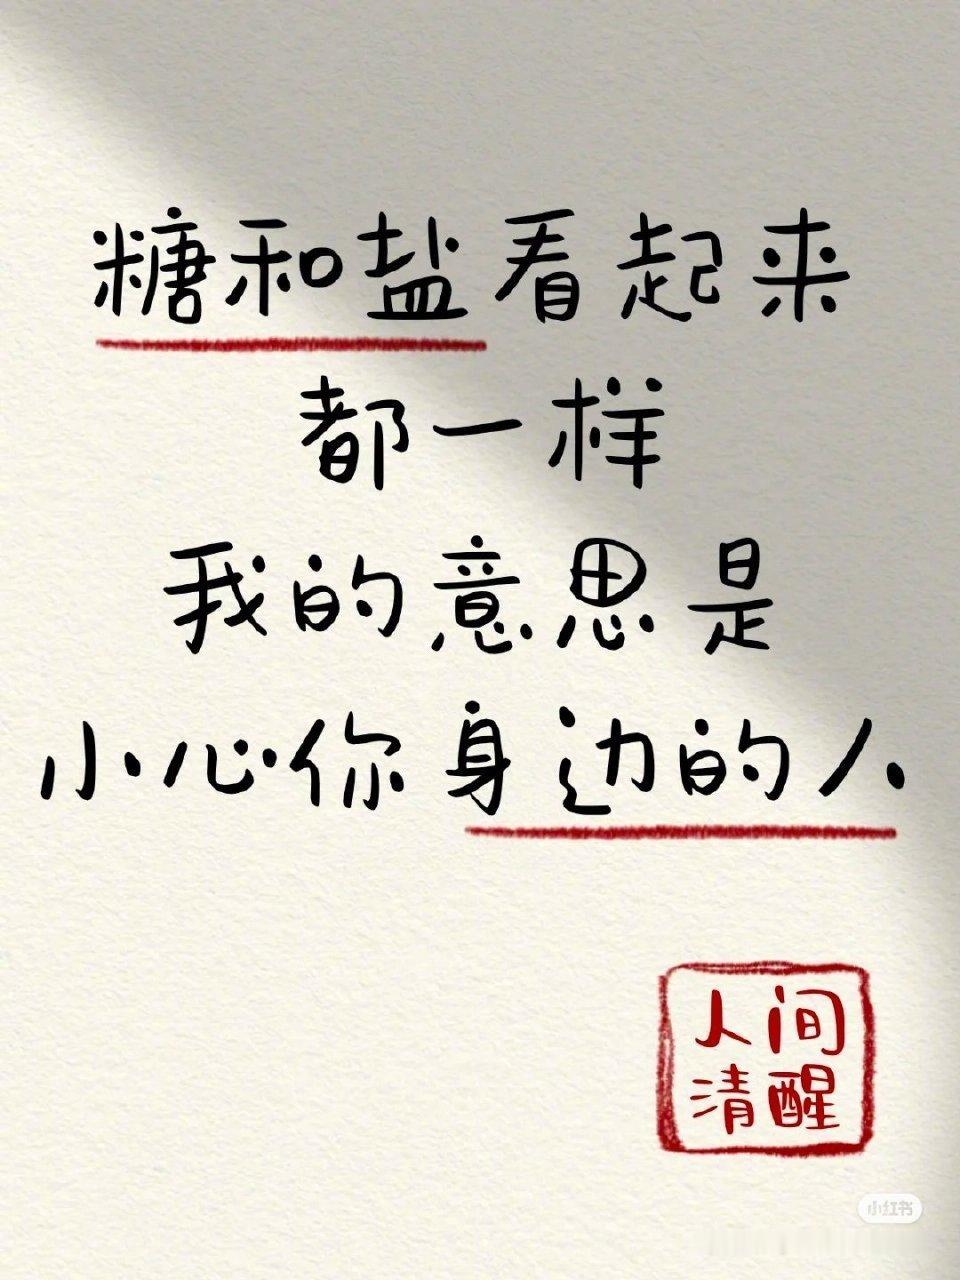 糖和盐看起来
都一样
我的意思是
小心你身边的人
人间
清醒
小红书